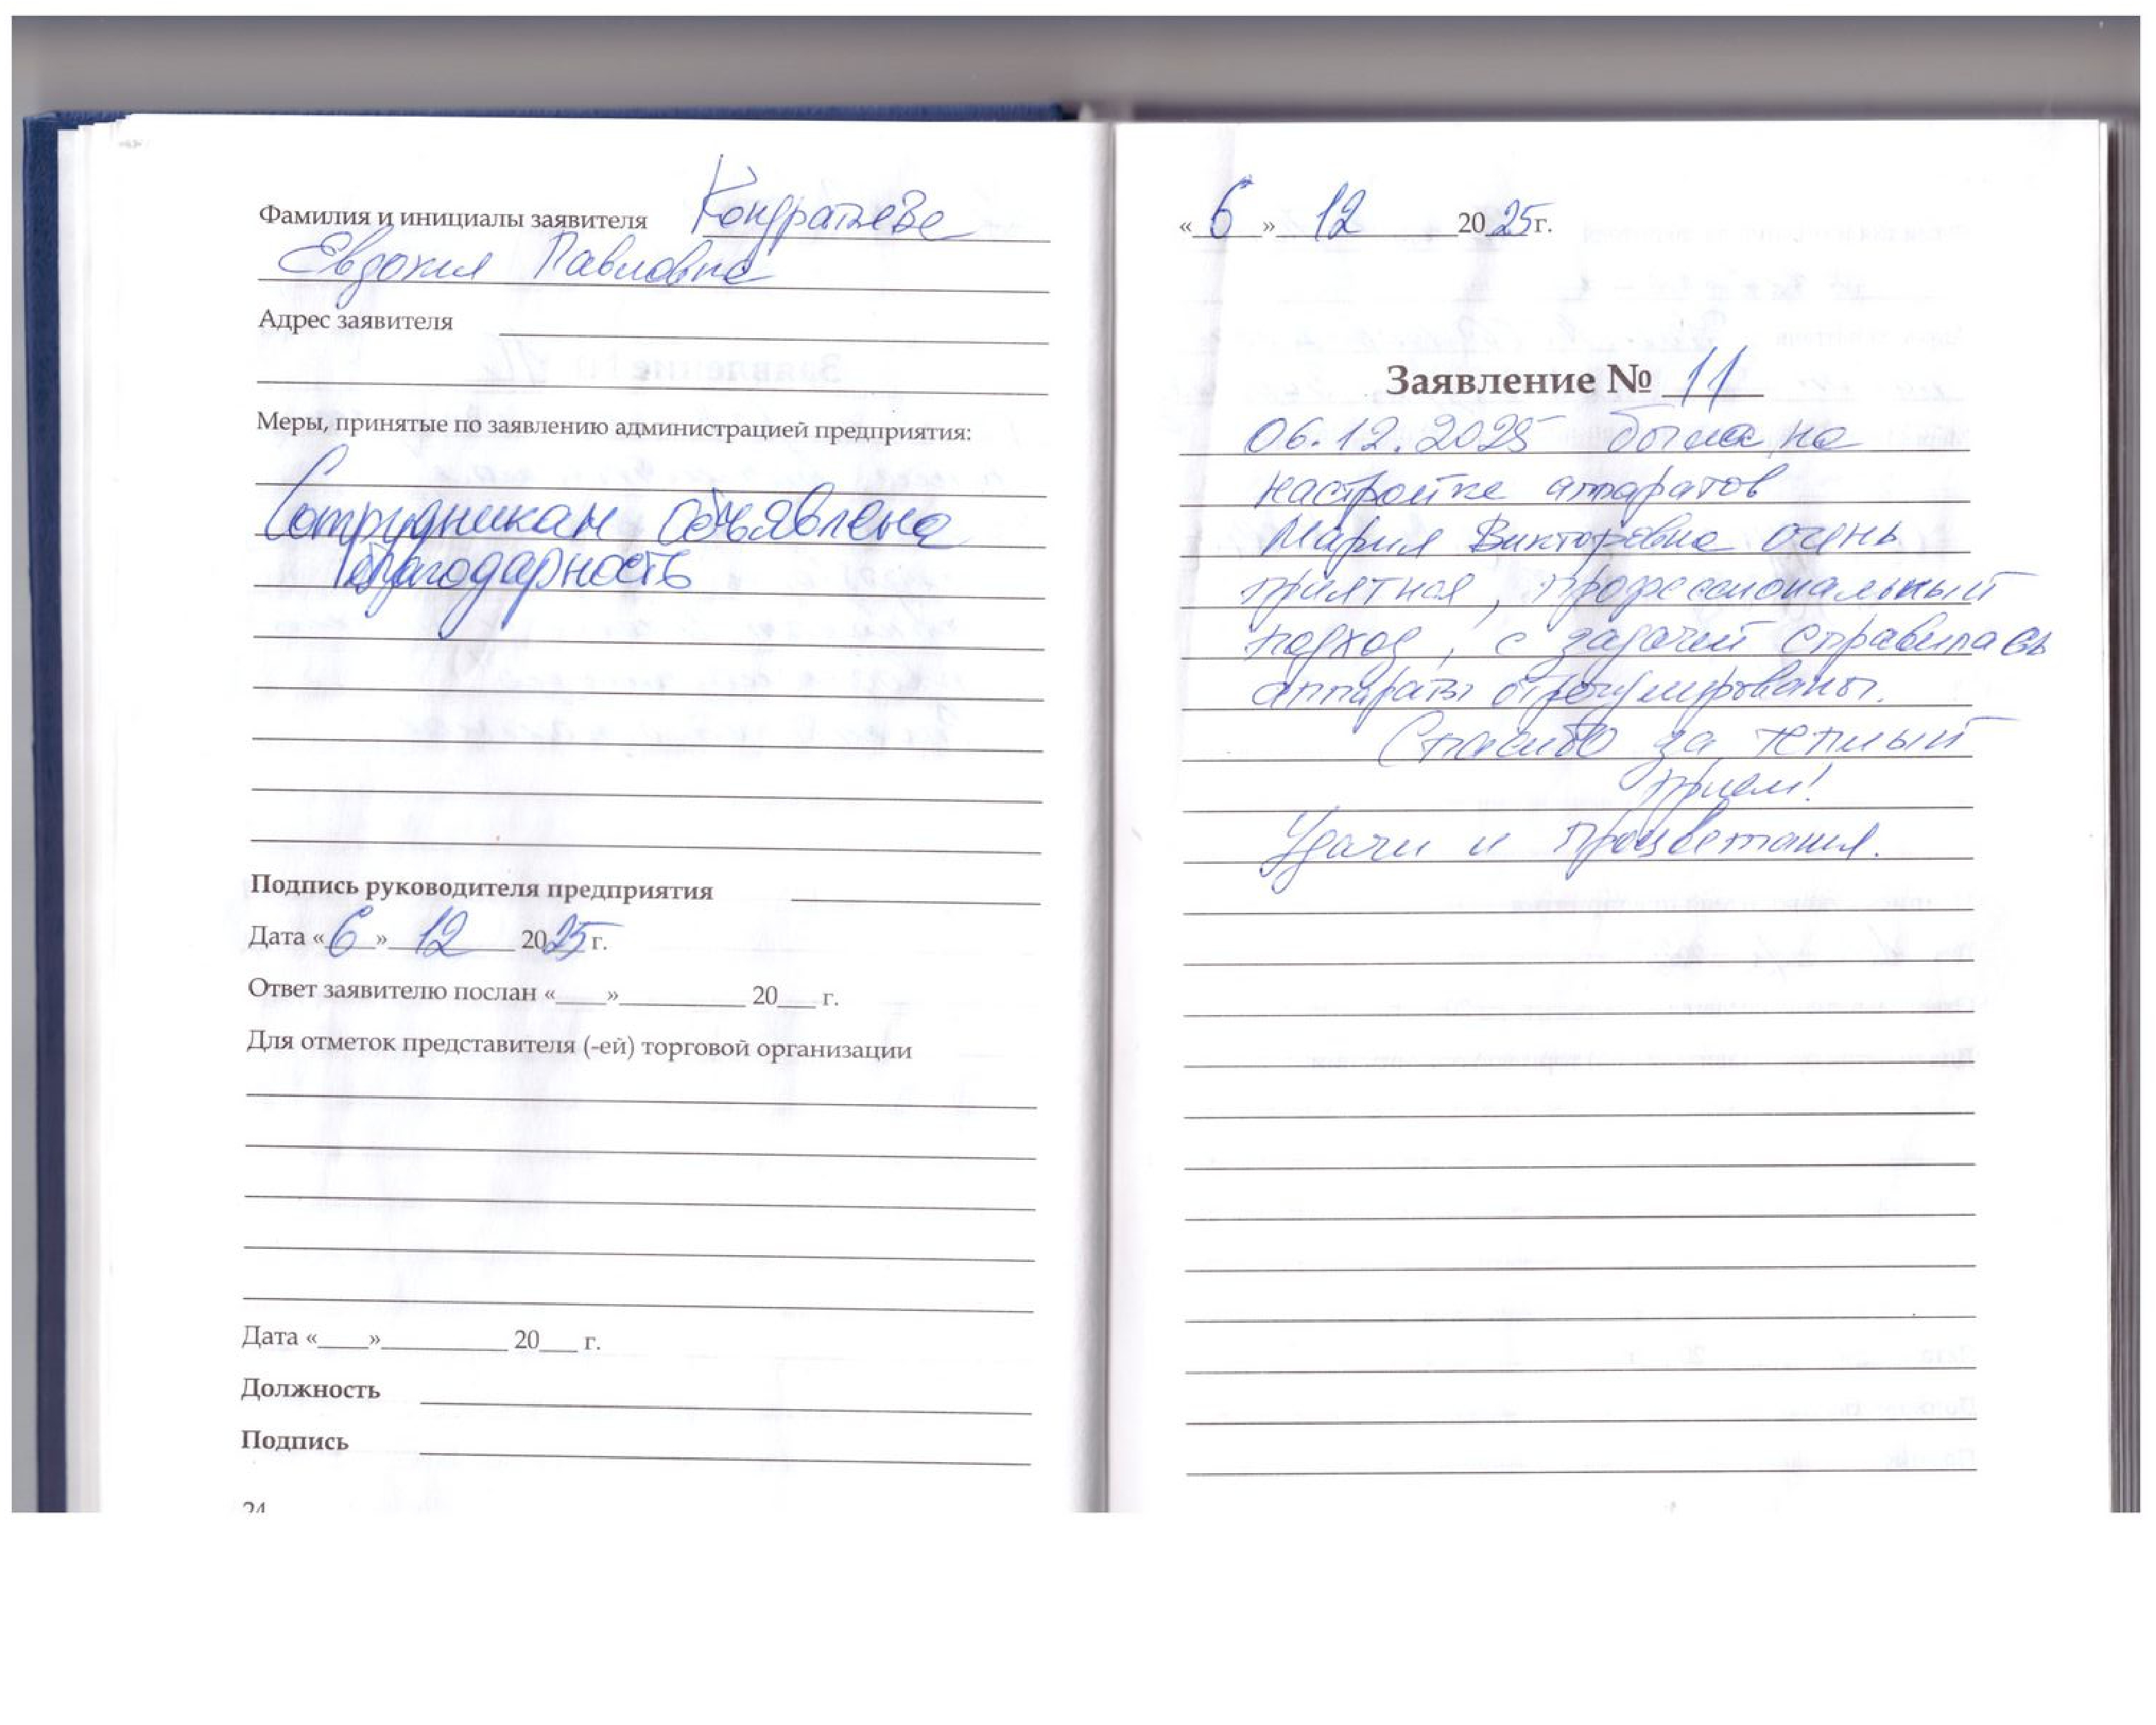 Фамилия и инициалы заявителя Кондратьева
Евдокия Павловна
Адрес заявителя
Меры, принятые по заявлению администрацией предприятия:
Сотрудникам объявлена
благодарность
Подпись руководителя предприятия
Дата «6» 12 2025 г.
Ответ заявителю послан «____»__________ 20___ г.
Для отметок представителя (-ей) торговой организации
Дата «____»__________ 20___ г.
Должность
Подпись
24
«6» 12 2025г.
Заявление № 11
06.12.2025 была на
настройке аппаратов
Мария Викторовна очень
приятная, профессиональный
подход, с задачей справилась
аппараты отрегулированы.
Спасибо за теплый
прием!
Удачи и процветания.